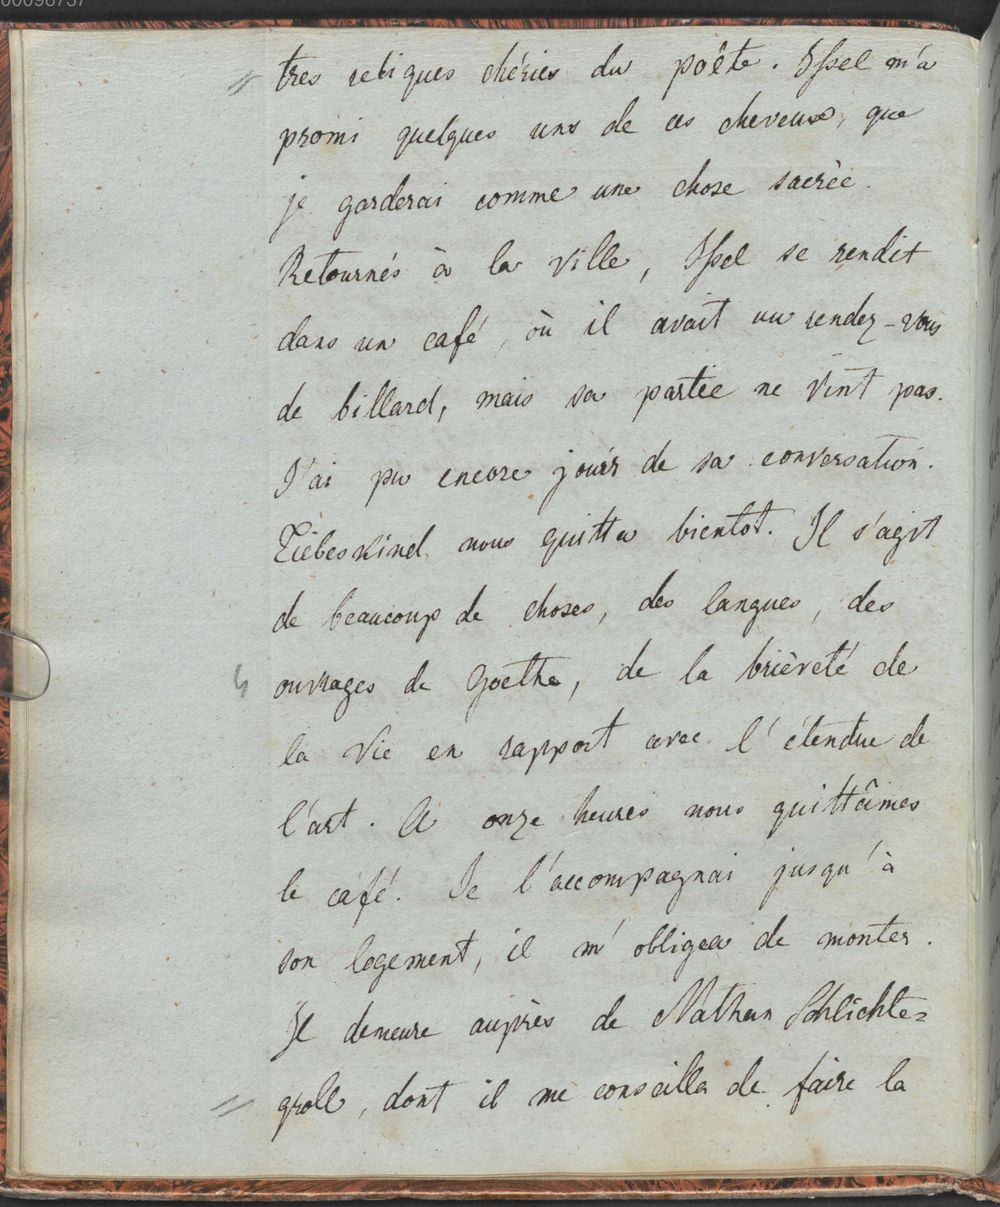 00096737
tres reliques chéries du poête. Issel m'a
promi quelques uns de ces cheveux, que
je garderai comme une chose sacrèe.
Retournés à la ville, Issel se rendit
dans un café, où il avait un rendez-vous
de billard, mais sa partie ne vint pas.
J'ai pu encore jouir de sa conversation.
Liebeskind nous quitta bientot. Il s'agit
de beaucoup de choses, des langues, des
ouvrages de Goethe, de la brièveté de
la vie en rapport avec l'étendue de
l'art. A onze heures nous quittâmes
le café. Je l'accompagnai jusqu'à
son logement, il m'obligea de monter.
Il demeure auprès de Nathan Schlichte=
groll, dont il me conseilla de faire la